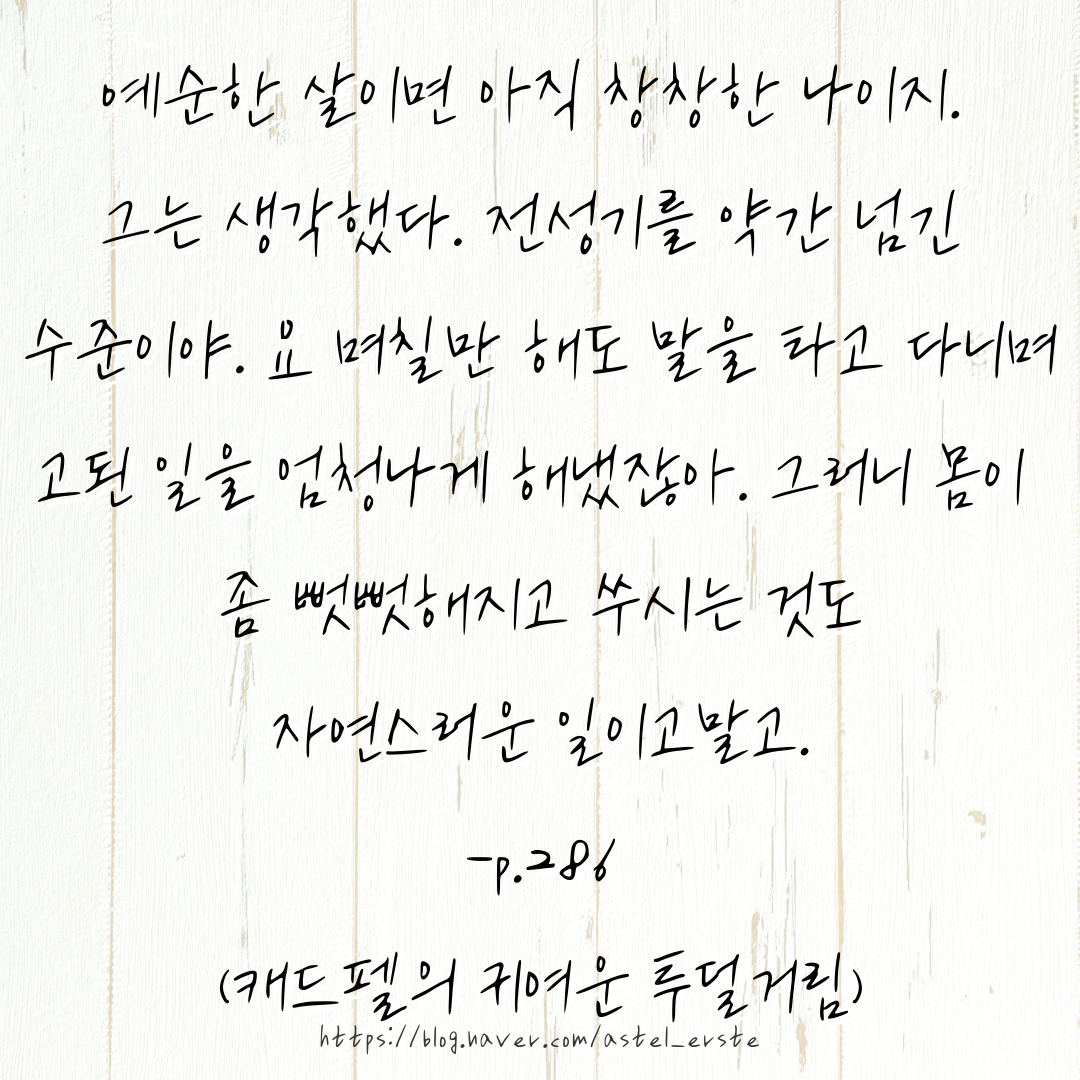 예순한 살이면 아직 창창한 나이지.
그는 생각했다. 전성기를 약간 넘긴
수준이야. 요 며칠만 해도 말을 타고 다니며
고된 일을 엄청나게 해냈잖아. 그러니 몸이
좀 뻣뻣해지고 쑤시는 것도
자연스러운 일이고말고.
-p.286
(캐드펠의 귀여운 투덜거림)
https://blog.naver.com/astel_erste